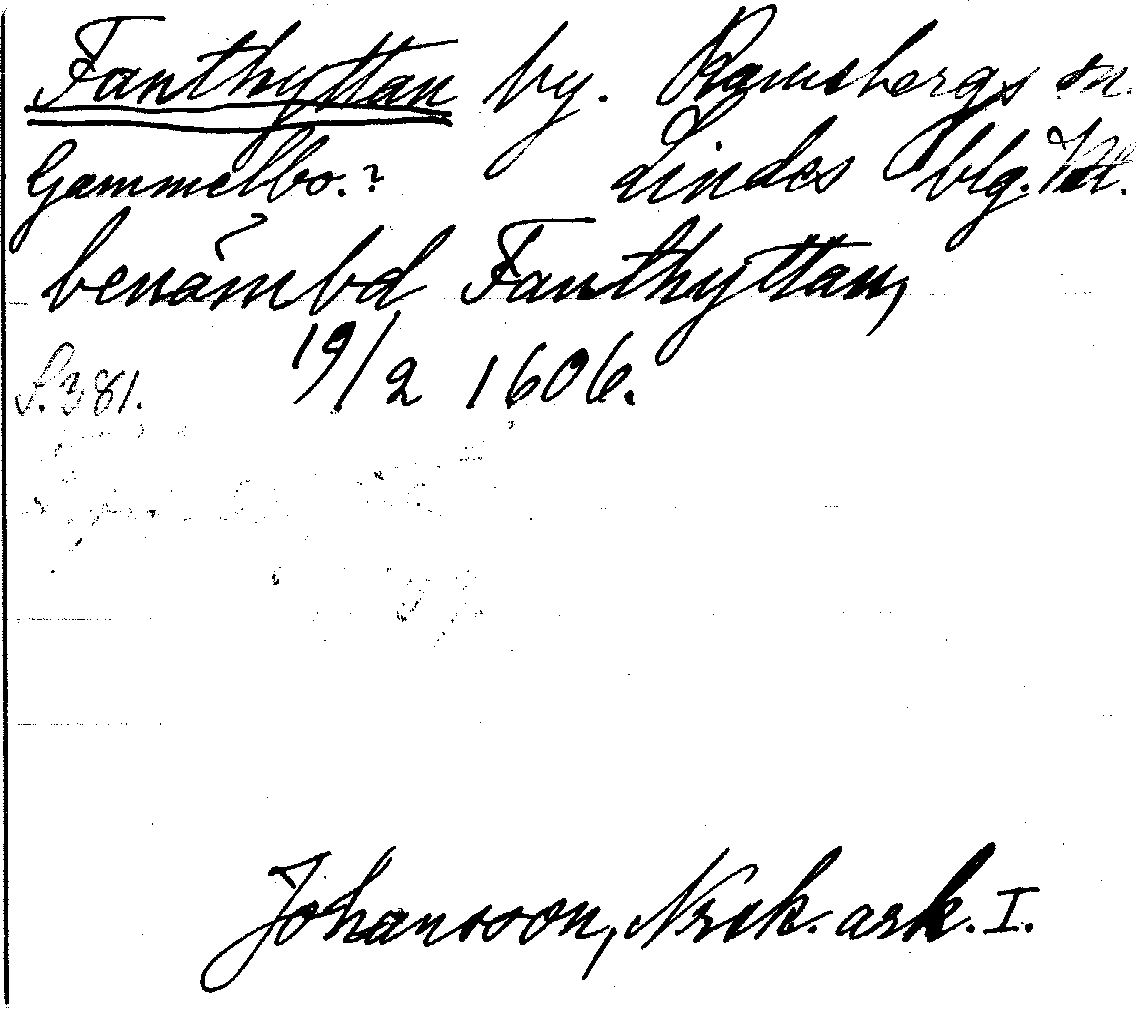 Fanthyttan by. Ramsbergs sn.
Gammelbo.? Lindes blg.
benämbd Fanthyttan,
19/2 1606.
S. 381.
Johansson, Nrck. ark. I.